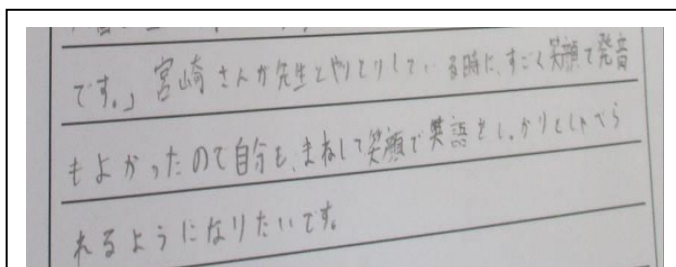 です。」宮崎さんが先生とやりとりしている時に、すごく笑顔で発音
もよかったので自分も、まねして笑顔で英語をしっかりとしゃべら
れるようになりたいです。